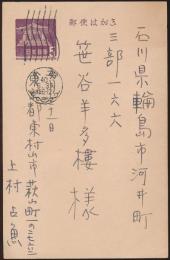 郵便はがき
石川県輪島市河井町
三部一六六
笹谷羊多樓様
十一日
東京都東村山市萩山町一の
上村占魚